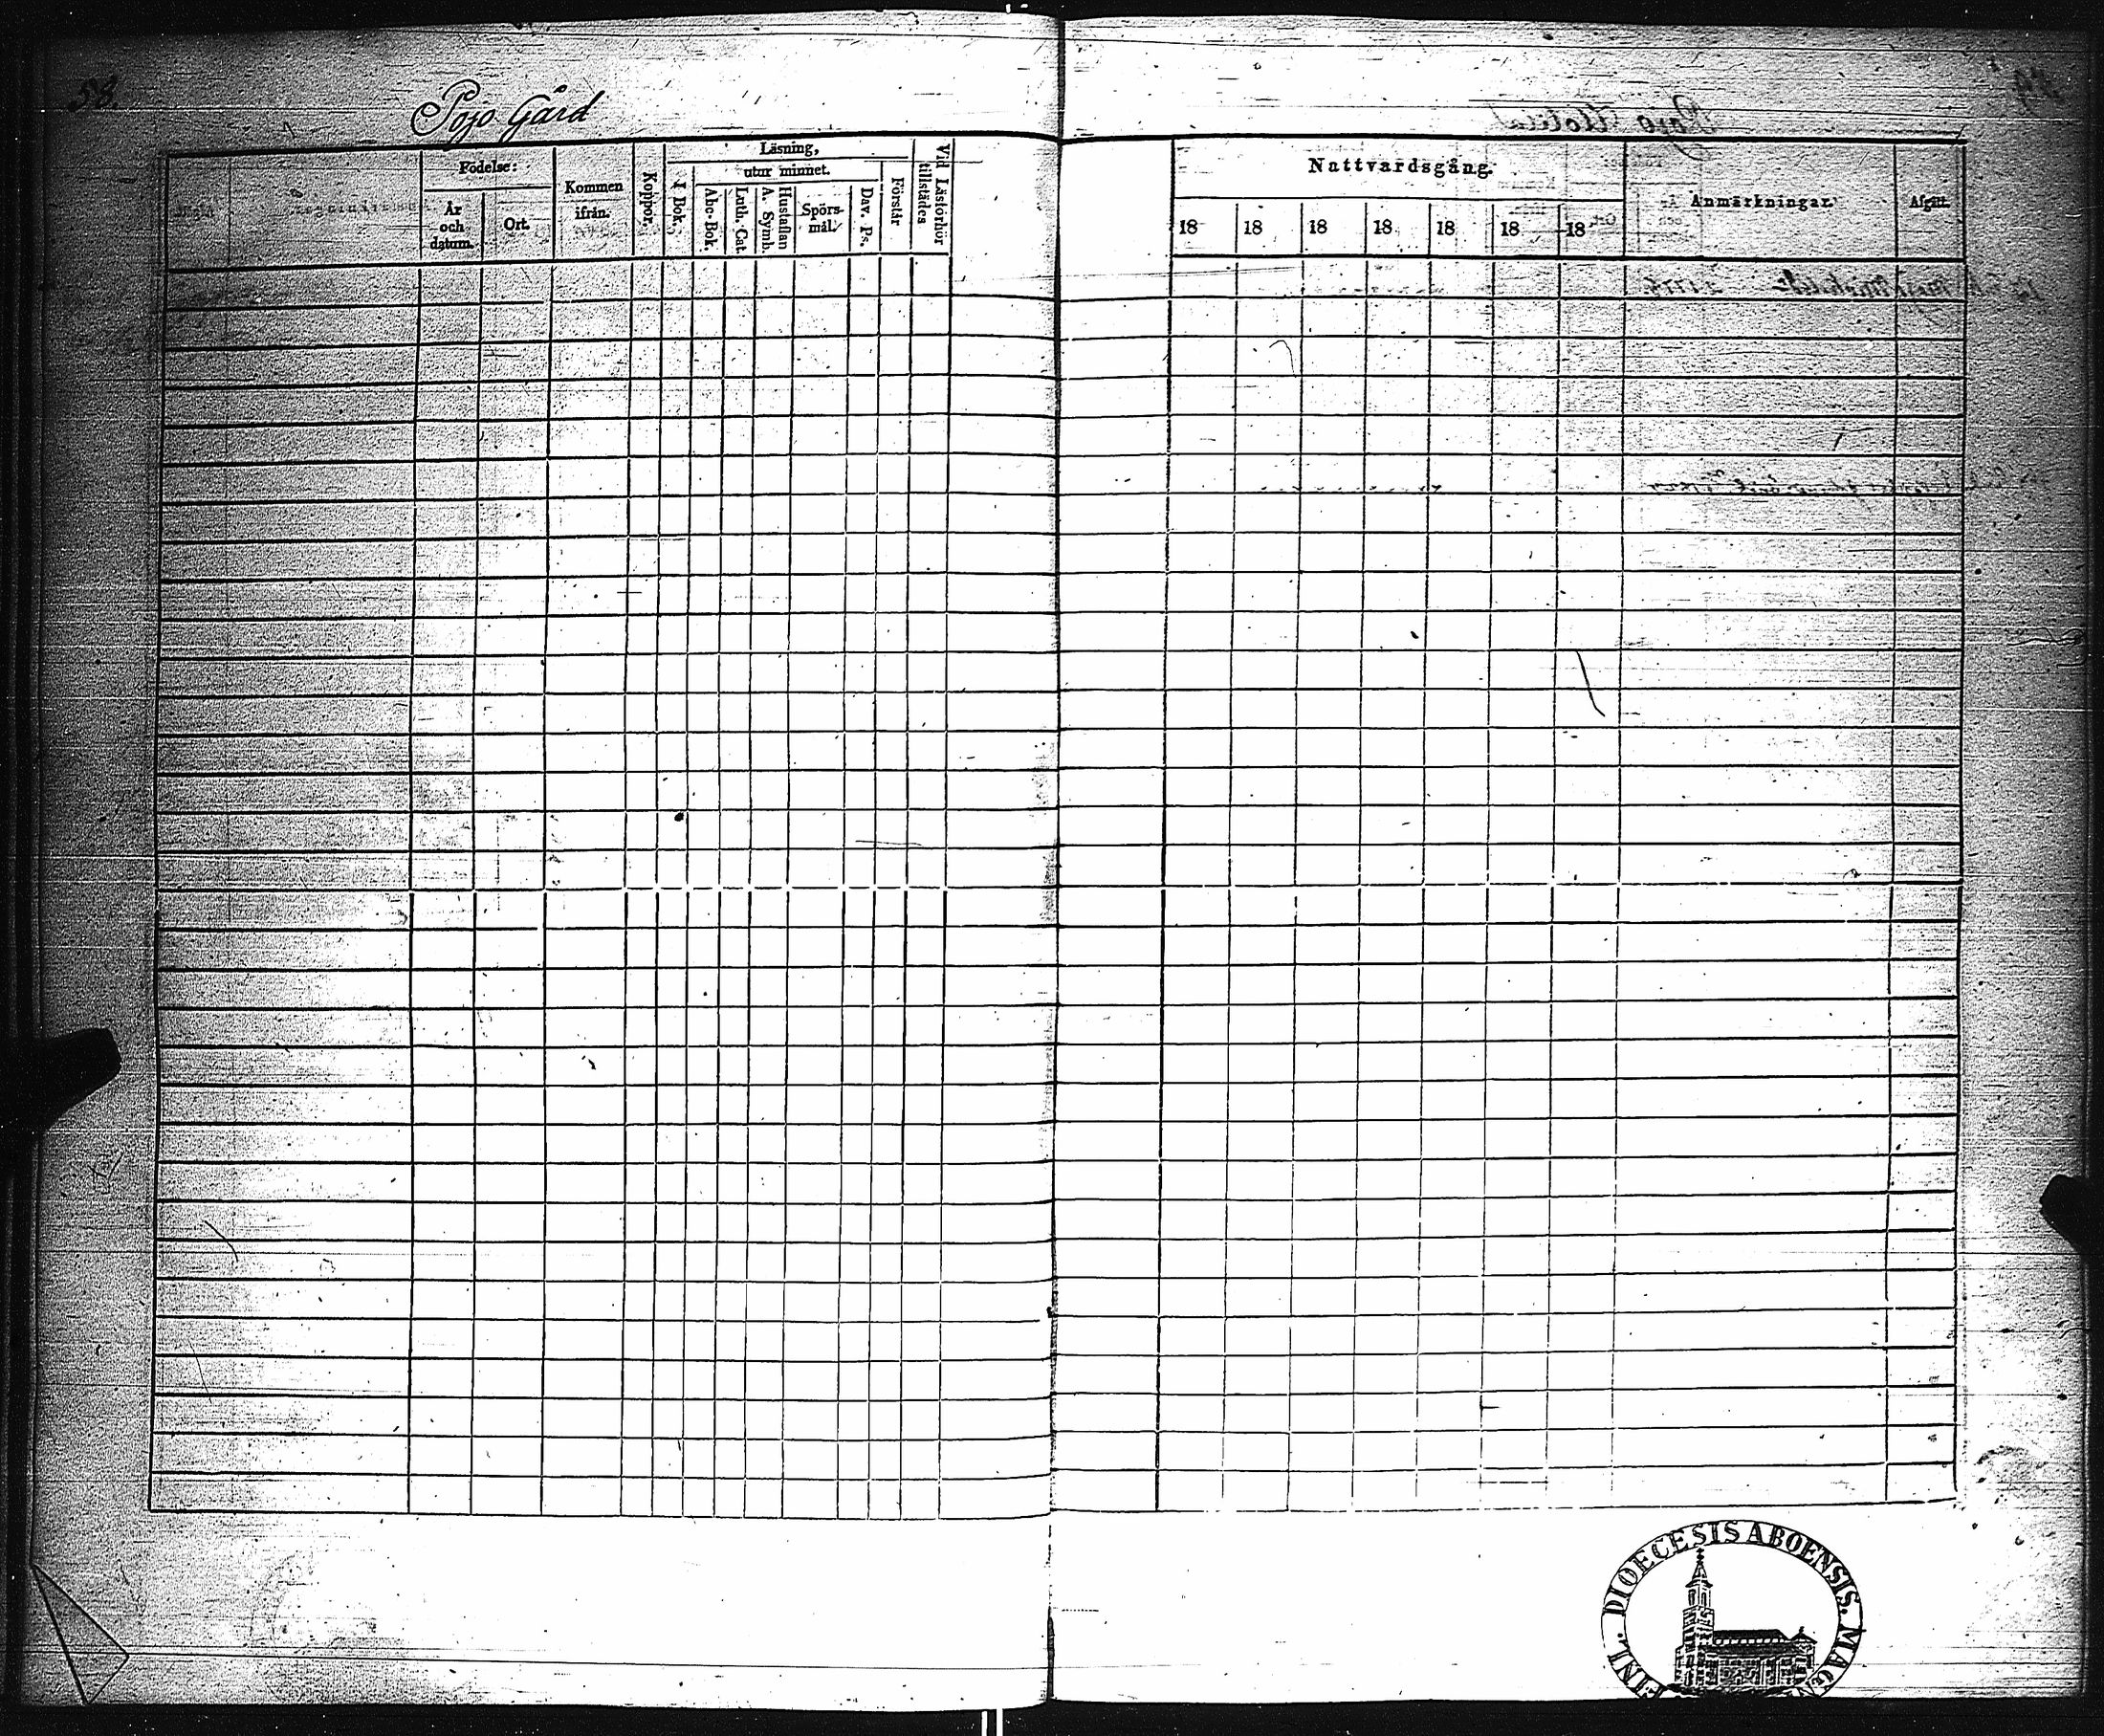 58.
Pojo Gård
Födelse:
År och datum.
Ort.
Kommen ifrån.
Koppor.
Läsning,
I Bok.
utur minnet.
Abc-Bok.
Luth. Cat.
A. Symb.
Hustaflan
Spörsmål.
Dav. Ps.
Förstår
Vid Läsförhör tillstädes
Nattvardsgång.
18 18 18 18 18 18 18
Anmärkningar.
Afgått.
FINL. DIOECESIS ABOENSIS. MAGN